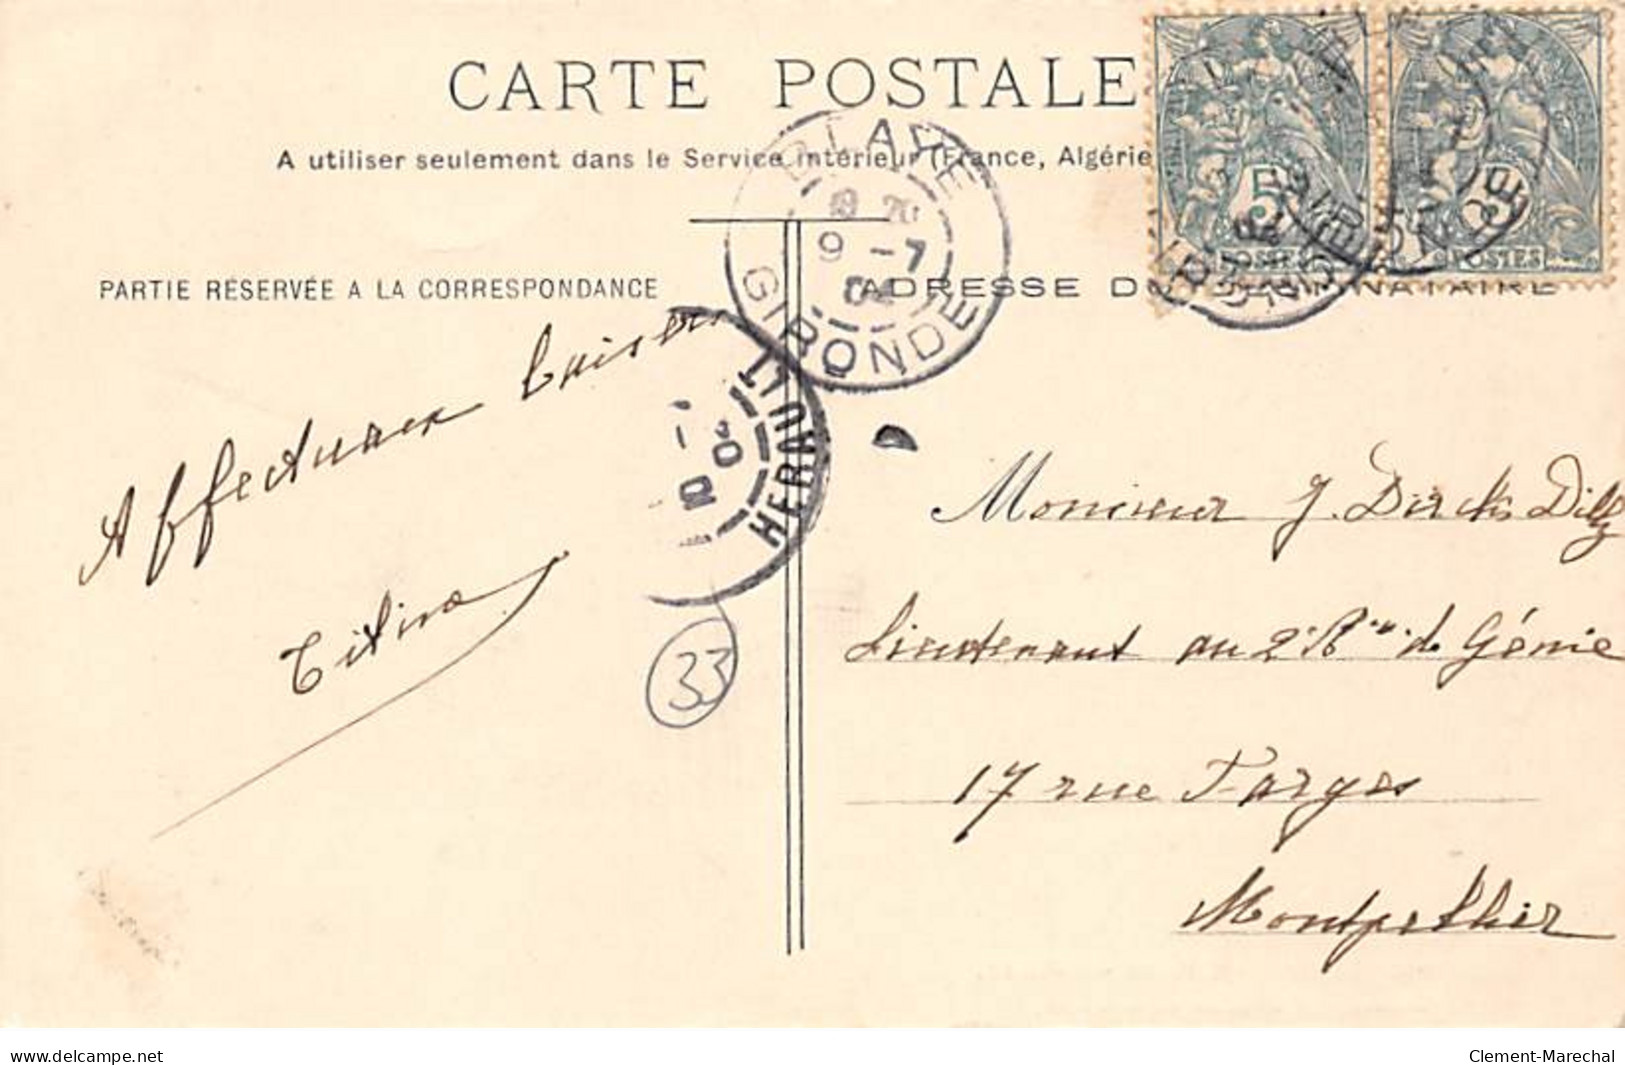 CARTE POSTALE
A utiliser seulement dans le Service intérieur (France, Algérie
BLAYE
9 -7
GIRONDE
PARTIE RÉSERVÉE A LA CORRESPONDANCE
ADRESSE DU DESTINATAIRE
5
POSTES
POSTES
HERAULT
Affectueux baisers
Titine
33
Monsieur J. Dircks Dilly
Lieutenant au 2e Rt de Génie
17 rue Farges
Montpellier
delcampe.net
Clement-Marechal